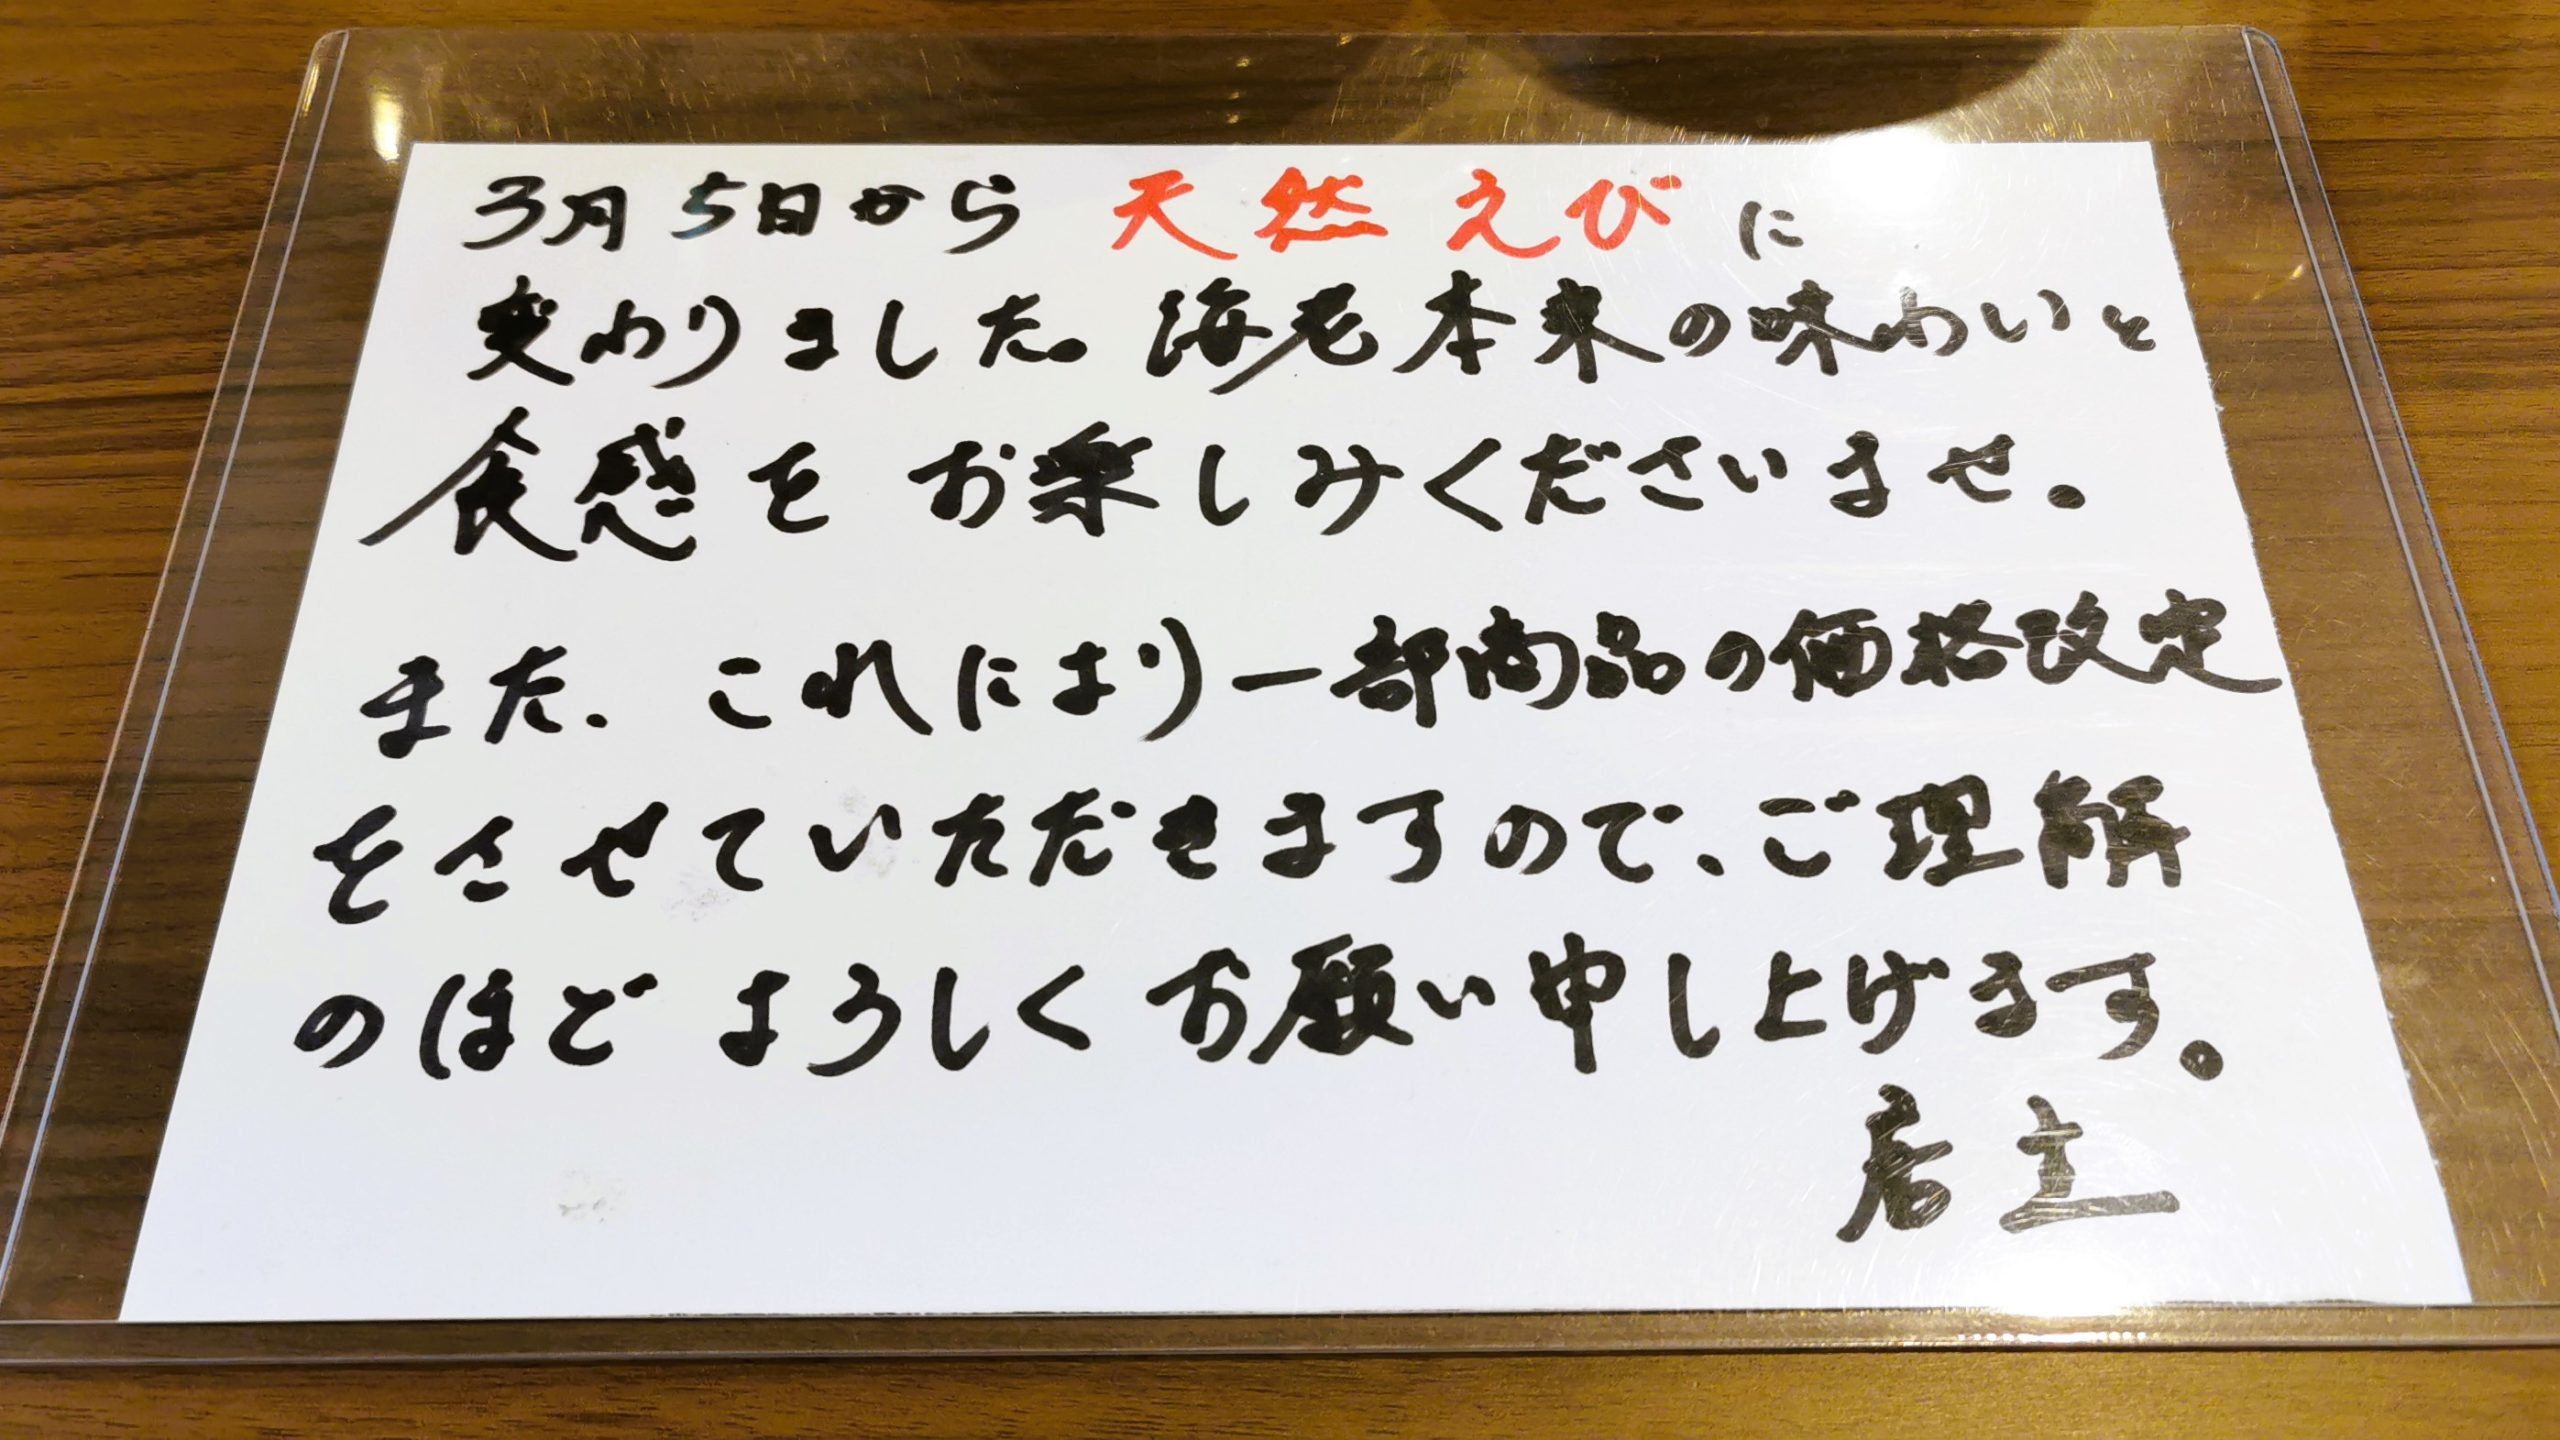 3月5日から天然えびに
変わりました。海老本来の味わいと
食感をお楽しみくださいませ。
また、これにより一部商品の価格改定
をさせていただきますので、ご理解
のほどよろしくお願い申し上げます。
店主